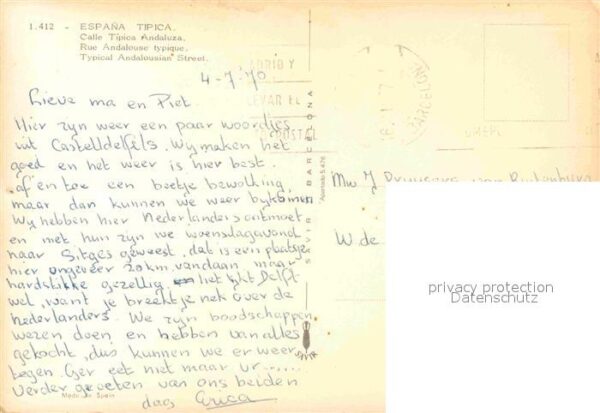 1.412 - ESPAÑA TIPICA.
Calle Típica Andaluza.
Rue Andalouse typique.
Typical Andalousian Street.
4-7-'70
Lieve ma en Piet.
Hier zyn weer een paar woordjes
uit Castelldefels. Wy maken het
goed en het weer is hier best.
af en toe een beetje bewolking,
maar dan kunnen we weer bykomen
Wy hebben hier Nederlanders ontmoet
en met hun zyn we woensdagavond
naar Sitges geweest, dat is een plaatsje
hier ongeveer 20 km. vandaan maar
hardstikke gezellig. liet lykt Delft
wel, want je breekt je nek over de
nederlanders. We zyn boodschappen
wezen doen en hebben van alles
gekocht, dus kunnen we er weer
tegen. Ger eet niet maar vr......
Verder groeten van ons beiden
dag Erica
Made in Spain
SAVIR BARCELONA
Apartado 5.476
SAVIR
BARCELONA
Mw. J
W. de
privacy protection
Datenschutz